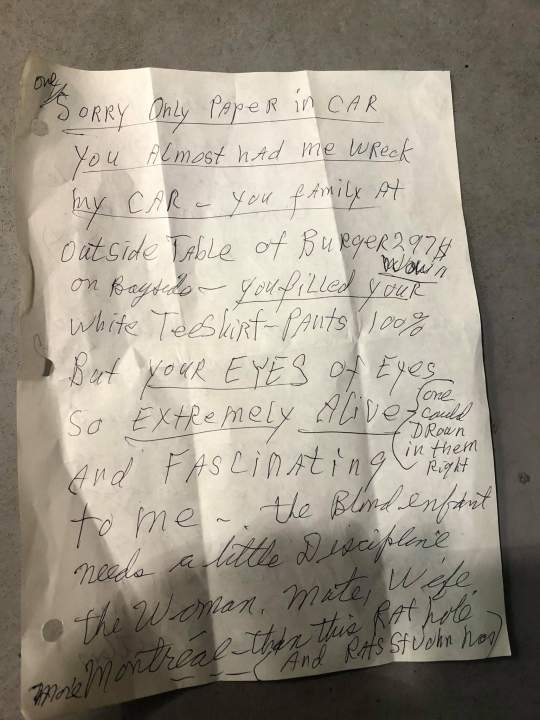 one
SORRY Only PAPER in CAR
You Almost had me WReck
my CAR - you family At
outside TABle of BuRgeR 297
Wow
on Bayside - you filled your
White TeeShirt - PAnts 100%
But your EYES of Eyes
So EXtRemely Alive
one
could
DRown
in them
Right
And FASCinAting
to me - the Blond enfant
needs a little Discipline
the Woman, Mate, Wife
more Montréal - than this RAt hole
(And RAts St John has)